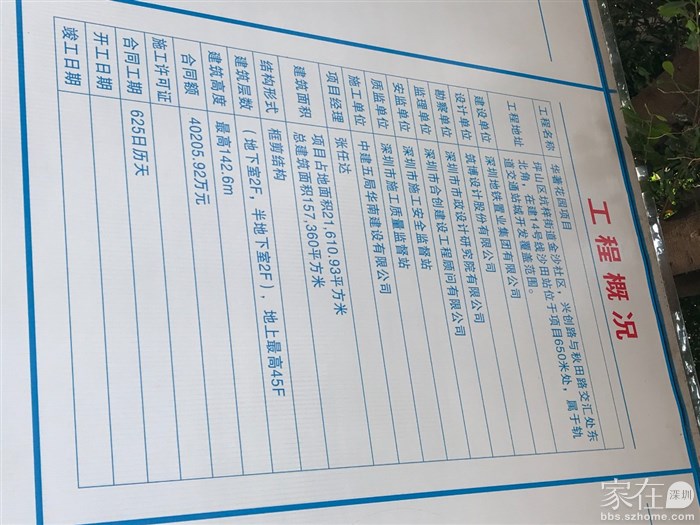 工程概况
工程名称 华著花园项目
工程地址 坪山区坑梓街道金沙社区，兴创路与秋田路交汇处东
北角，在建14号线沙田站位于项目650米处，属于轨
道交通站城开发覆盖范围。
建设单位 深圳地铁置业集团有限公司
设计单位 筑博设计股份有限公司
勘察单位 深圳市市政设计研究院有限公司
监理单位 深圳市合创建设工程顾问有限公司
安监单位 深圳市施工安全监督站
质监单位 深圳市施工质量监督站
施工单位 中建五局华南建设有限公司
项目经理 张任达
建筑面积 项目占地面积21,610.93平方米
总建筑面积157,360平方米
结构形式 框剪结构
建筑层数 （地下室2F，半地下室2F），地上最高45F
建筑高度 最高142.6m
合同额 40205.92万元
施工许可证
合同工期 625日历天
开工日期
竣工日期
家在深圳
bbs.szhome.com